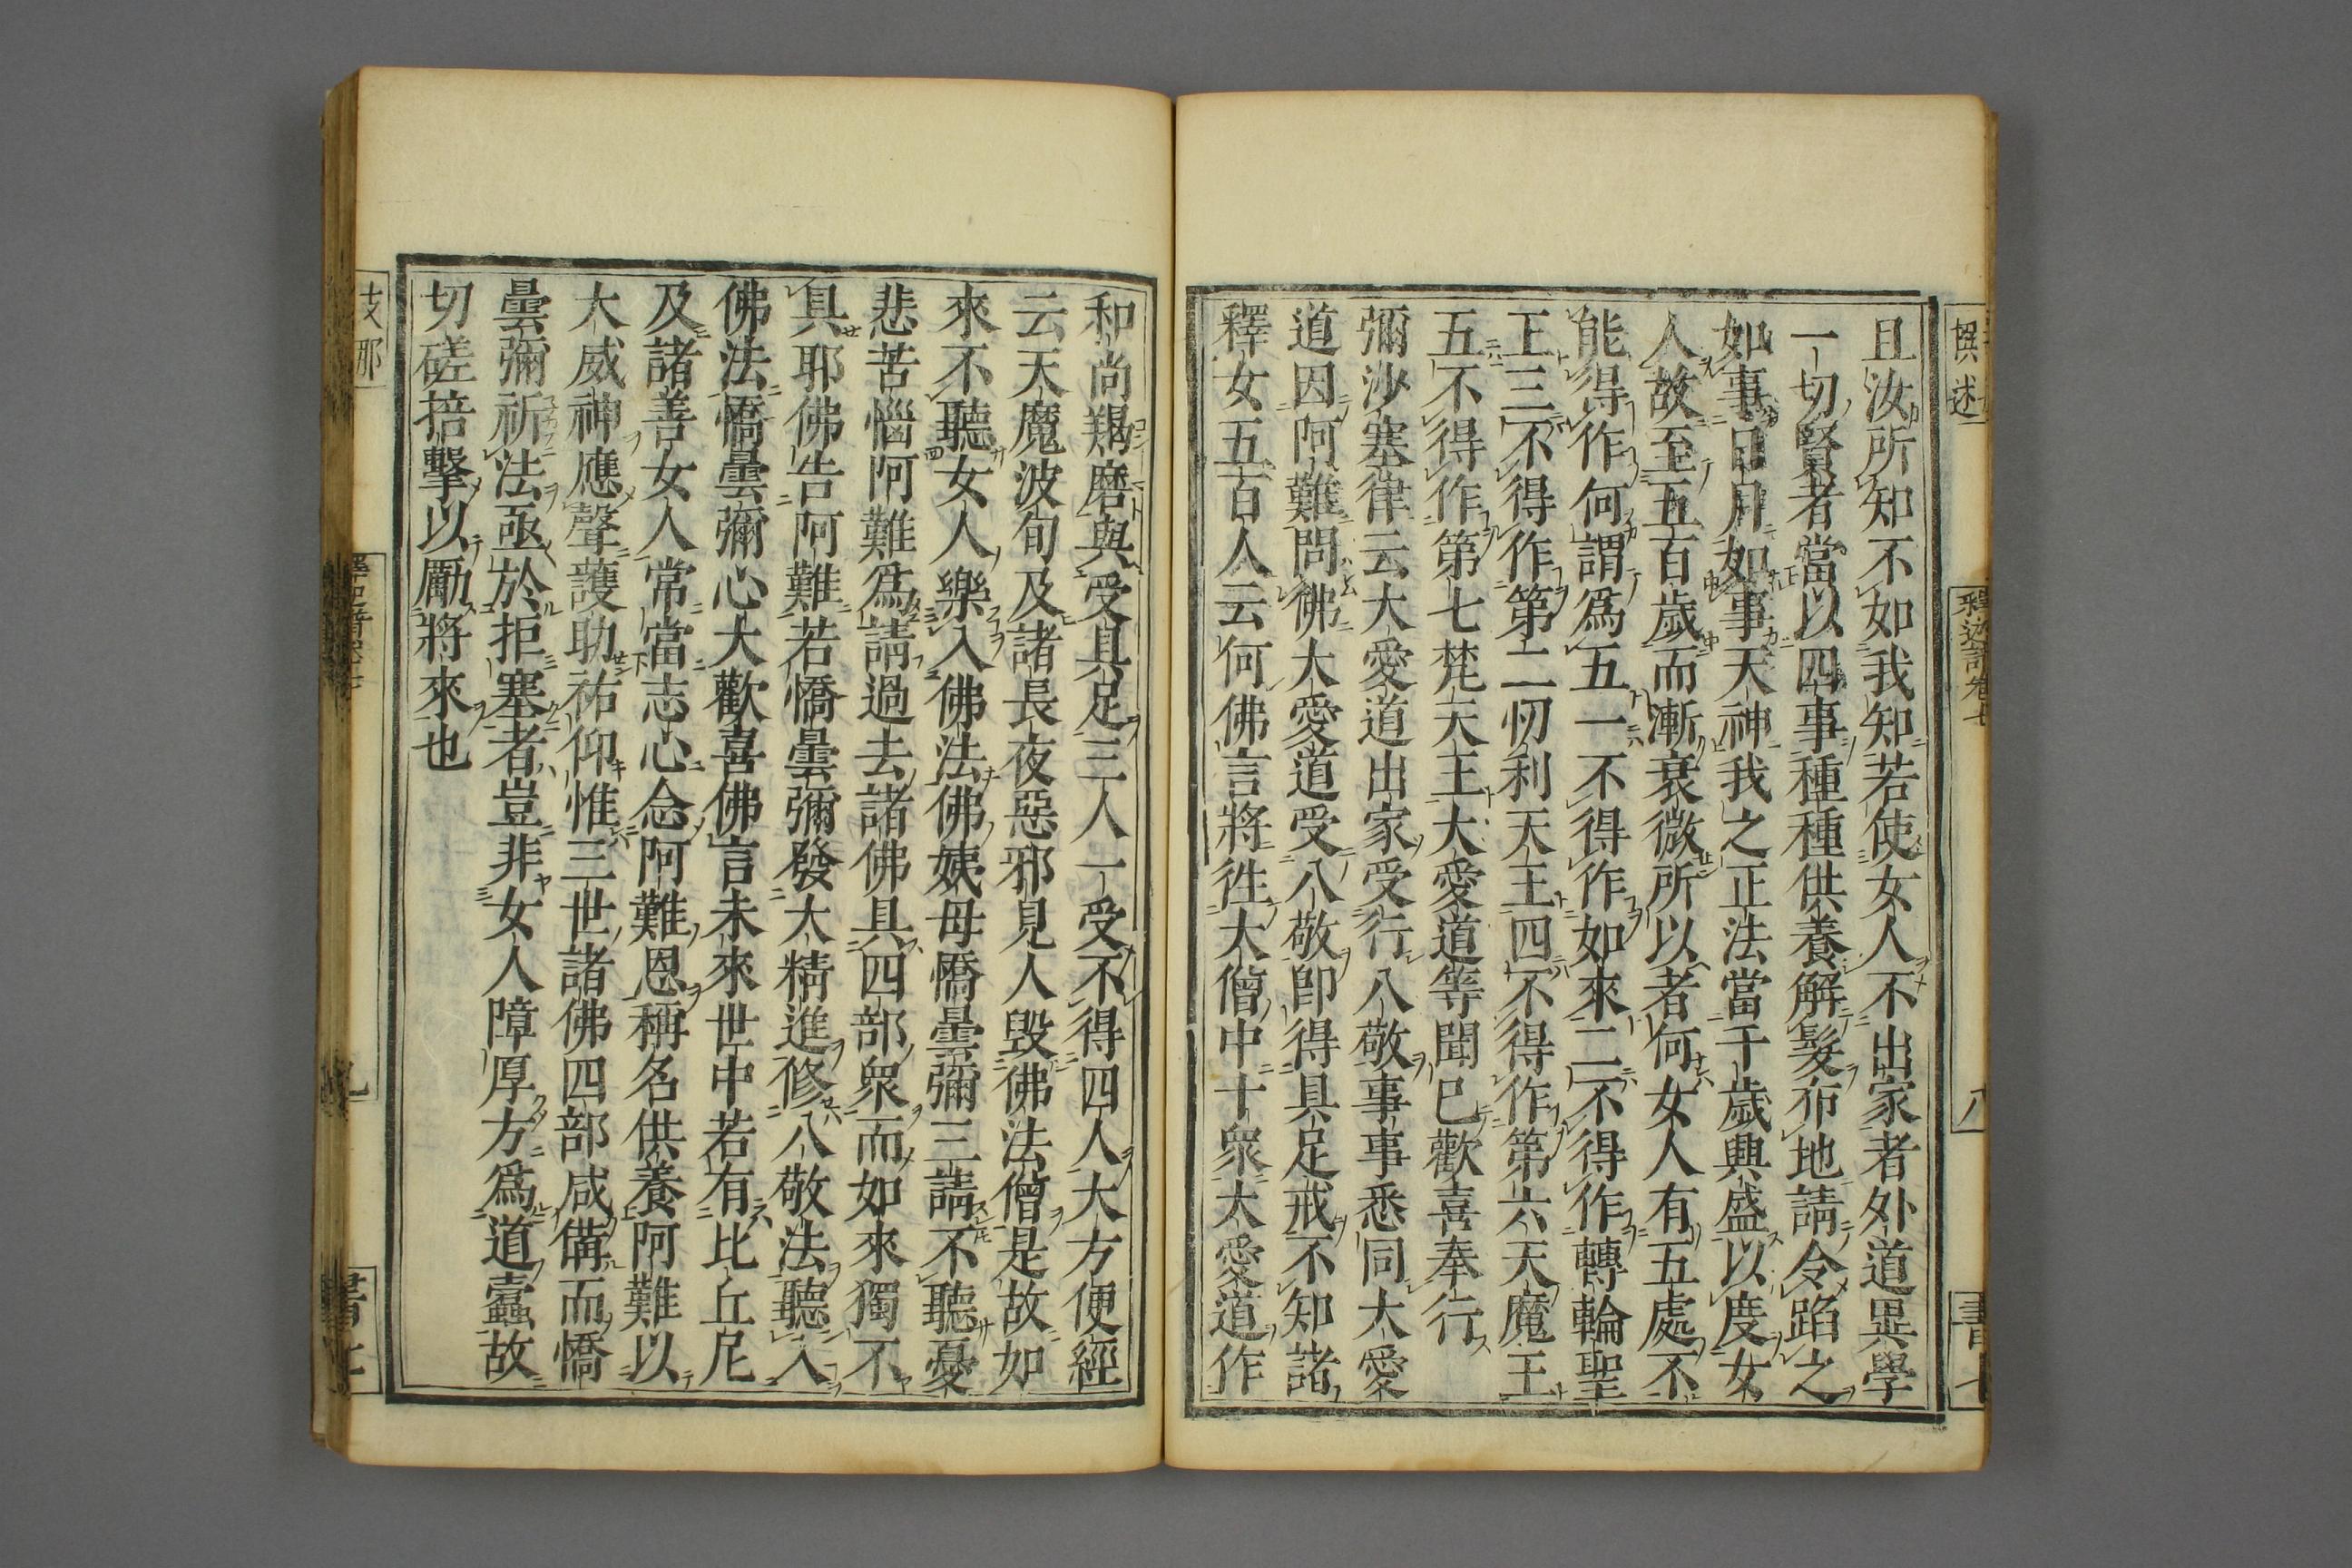 撰述
釋迦譜卷七
八
書七
且汝所知不如我知若使女人不出家者外道異學
一切賢者當以四事種種供養解髮布地請令蹈之
如事日月如事天神我之正法當千歲興盛以度女
人故至五百歲而漸衰微所以者何女人有五處不
能得作何謂爲五一不得作如來二不得作轉輪聖
王三不得作第二忉利天王四不得作第六天魔王
五不得作第七梵天王大愛道等聞已歡喜奉行
彌沙塞律云大愛道出家受行八敬事事悉同大愛
道因阿難問佛大愛道受八敬卽得具足戒不知諸
釋女五百人云何佛言將徃大僧中十衆大愛道作
和尚羯磨與受具足三人一受不得四人大方便經
云天魔波旬及諸長夜惡邪見人毀佛法僧是故如
來不聽女人樂入佛法佛姨母憍曇彌三請不聽憂
悲苦惱阿難爲請過去諸佛具四部衆而如來獨不
具耶佛告阿難若憍曇彌發大精進修八敬法聽入
佛法憍曇彌心大歡喜佛言未來世中若有比丘尼
及諸善女人常當志心念阿難恩稱名供養阿難以
大威神應聲護助祐仰惟三世諸佛四部咸備而憍
曇彌祈法亟於拒塞者豈非女人障厚方爲道蠹故
切磋掊擊以勵將來也
支那
九
書七